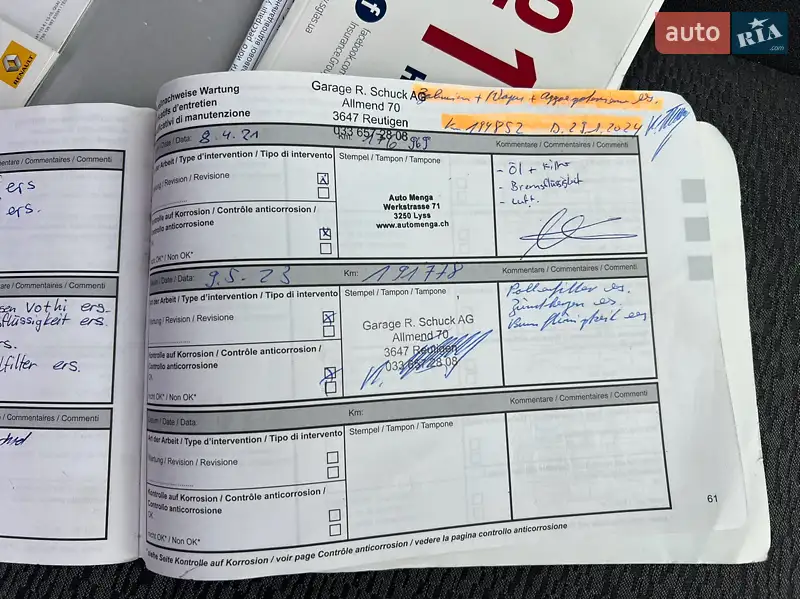 auto RIA
.com
RENAULT
facebook.com
Insurance
nachweise Wartung
d'entretien
di manutenzione
Garage R. Schuck AG
Allmend 70
3647 Reutigen
033 657 28 08
Km 194852 D. 29.1.2024
/ Data: 8.4.21
Km: 176 969
Kommentare / Commentaires / Commenti
Arbeit / Type d'intervention / Tipo di intervento
/ Revision / Revisione
Kontrolle auf Korrosion / Contrôle anticorrosion /
Controllo anticorrosione
OK* / Non OK*
Stempel / Tampon / Tampone
Auto Menga
Werkstrasse 71
3250 Lyss
www.automenga.ch
- Öl + Filter
- Bremsflüssigkeit
- Luft.
/ Date / Data: 9.5.23
Km: 191778
Kommentare / Commentaires / Commenti
Art der Arbeit / Type d'intervention / Tipo di intervento
Wartung / Revision / Revisione
Kontrolle auf Korrosion / Contrôle anticorrosion /
Controllo anticorrosione
OK
Nicht OK* / Non OK*
Stempel / Tampon / Tampone
Garage R. Schuck AG
Allmend 70
3647 Reutigen
033 657 28 08
Pollenfilter es.
Zündkerzen es.
Bremsflüssigkeit es
Datum / Date / Data:
Km:
Kommentare / Commentaires / Commenti
Art der Arbeit / Type d'intervention / Tipo di intervento
Wartung / Revision / Revisione
Kontrolle auf Korrosion / Contrôle anticorrosion /
Controllo anticorrosione
OK
Nicht OK* / Non OK*
Stempel / Tampon / Tampone
*siehe Seite Kontrolle auf Korrosion / voir page Contrôle anticorrosion / vedere la pagina controllo anticorrosione
61
Kommentare / Commentaires / Commenti
ers
ers.
/ Commentaires / Commenti
ers.
flüssigkeit ers.
filter ers.
/ Commentaires / Commenti